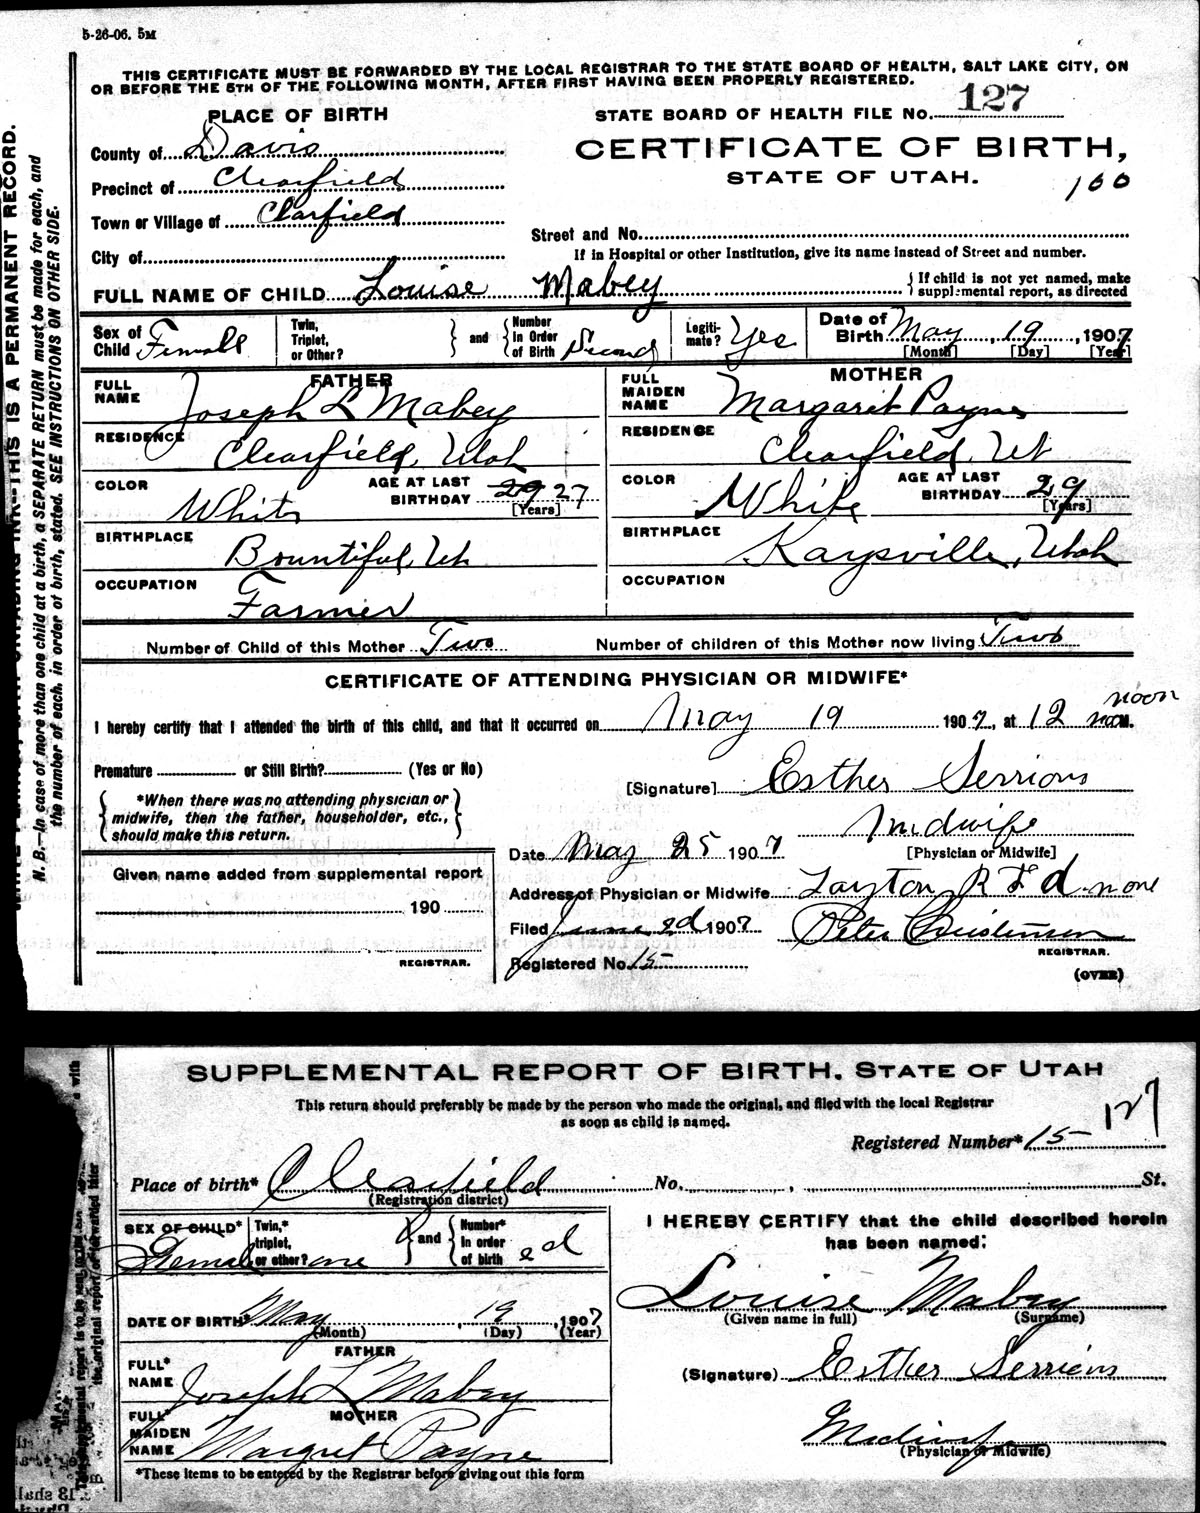 5-26-06. 5M
THIS CERTIFICATE MUST BE FORWARDED BY THE LOCAL REGISTRAR TO THE STATE BOARD OF HEALTH, SALT LAKE CITY, ON
OR BEFORE THE 5TH OF THE FOLLOWING MONTH, AFTER FIRST HAVING BEEN PROPERLY REGISTERED.
PLACE OF BIRTH
STATE BOARD OF HEALTH FILE NO. 127
County of Davis
CERTIFICATE OF BIRTH,
STATE OF UTAH.
100
Precinct of Clearfield
Town or Village of Clarfield
Street and No.
City of
If in Hospital or other Institution, give its name instead of Street and number.
FULL NAME OF CHILD Louise Mabey
{ If child is not yet named, make
supplemental report, as directed
Sex of Child Female
Twin, Triplet, or Other? } and { Number In Order of Birth Second
Legiti- mate? Yes
Date of Birth May 19, 1907
[Month] [Day] [Year]
FATHER
FULL NAME Joseph L Mabey
RESIDENCE Clearfield, Utah
COLOR White
AGE AT LAST BIRTHDAY 29 27
[Years]
BIRTHPLACE Bountiful, Ut
OCCUPATION Farmer
MOTHER
FULL MAIDEN NAME Margaret Payne
RESIDENCE Clearfield, Ut
COLOR White
AGE AT LAST BIRTHDAY 29
[Years]
BIRTHPLACE Kaysville, Utah
OCCUPATION
Number of Child of this Mother Two
Number of children of this Mother now living Two
CERTIFICATE OF ATTENDING PHYSICIAN OR MIDWIFE*
I hereby certify that I attended the birth of this child, and that it occurred on May 19 1907, at 12 noon M.
Premature or Still Birth? (Yes or No)
[Signature] Esther Serrions
*When there was no attending physician or
midwife, then the father, householder, etc.,
should make this return.
Midwife
[Physician or Midwife]
Date May 25 1907
Given name added from supplemental report
190
REGISTRAR.
Address of Physician or Midwife Layton R F d none
Filed June 2d 1907 Peter Christensen
REGISTRAR.
Registered No. 15
(OVER)
THIS IS A PERMANENT RECORD.
N. B.—In case of more than one child at a birth, a SEPARATE RETURN must be made for each, and
the number of each, in order of birth, stated. SEE INSTRUCTIONS ON OTHER SIDE.
SUPPLEMENTAL REPORT OF BIRTH. STATE OF UTAH
This return should preferably be made by the person who made the original, and filed with the local Registrar
as soon as child is named.
127
Registered Number* 15
Place of birth* Clearfield No. , St.
(Registration district)
SEX OF CHILD* Female
Twin,* triplet, or other? one } and { Number* In order of birth 2d
I HEREBY CERTIFY that the child described herein
has been named:
Louise Mabey
(Given name in full) (Surname)
DATE OF BIRTH* May 19, 1907
(Month) (Day) (Year)
FATHER
FULL* NAME Joseph L Mabey
(Signature) Esther Serrions
MOTHER
FULL* MAIDEN NAME Margret Payne
Midwife
(Physician or Midwife)
*These items to be entered by the Registrar before giving out this form